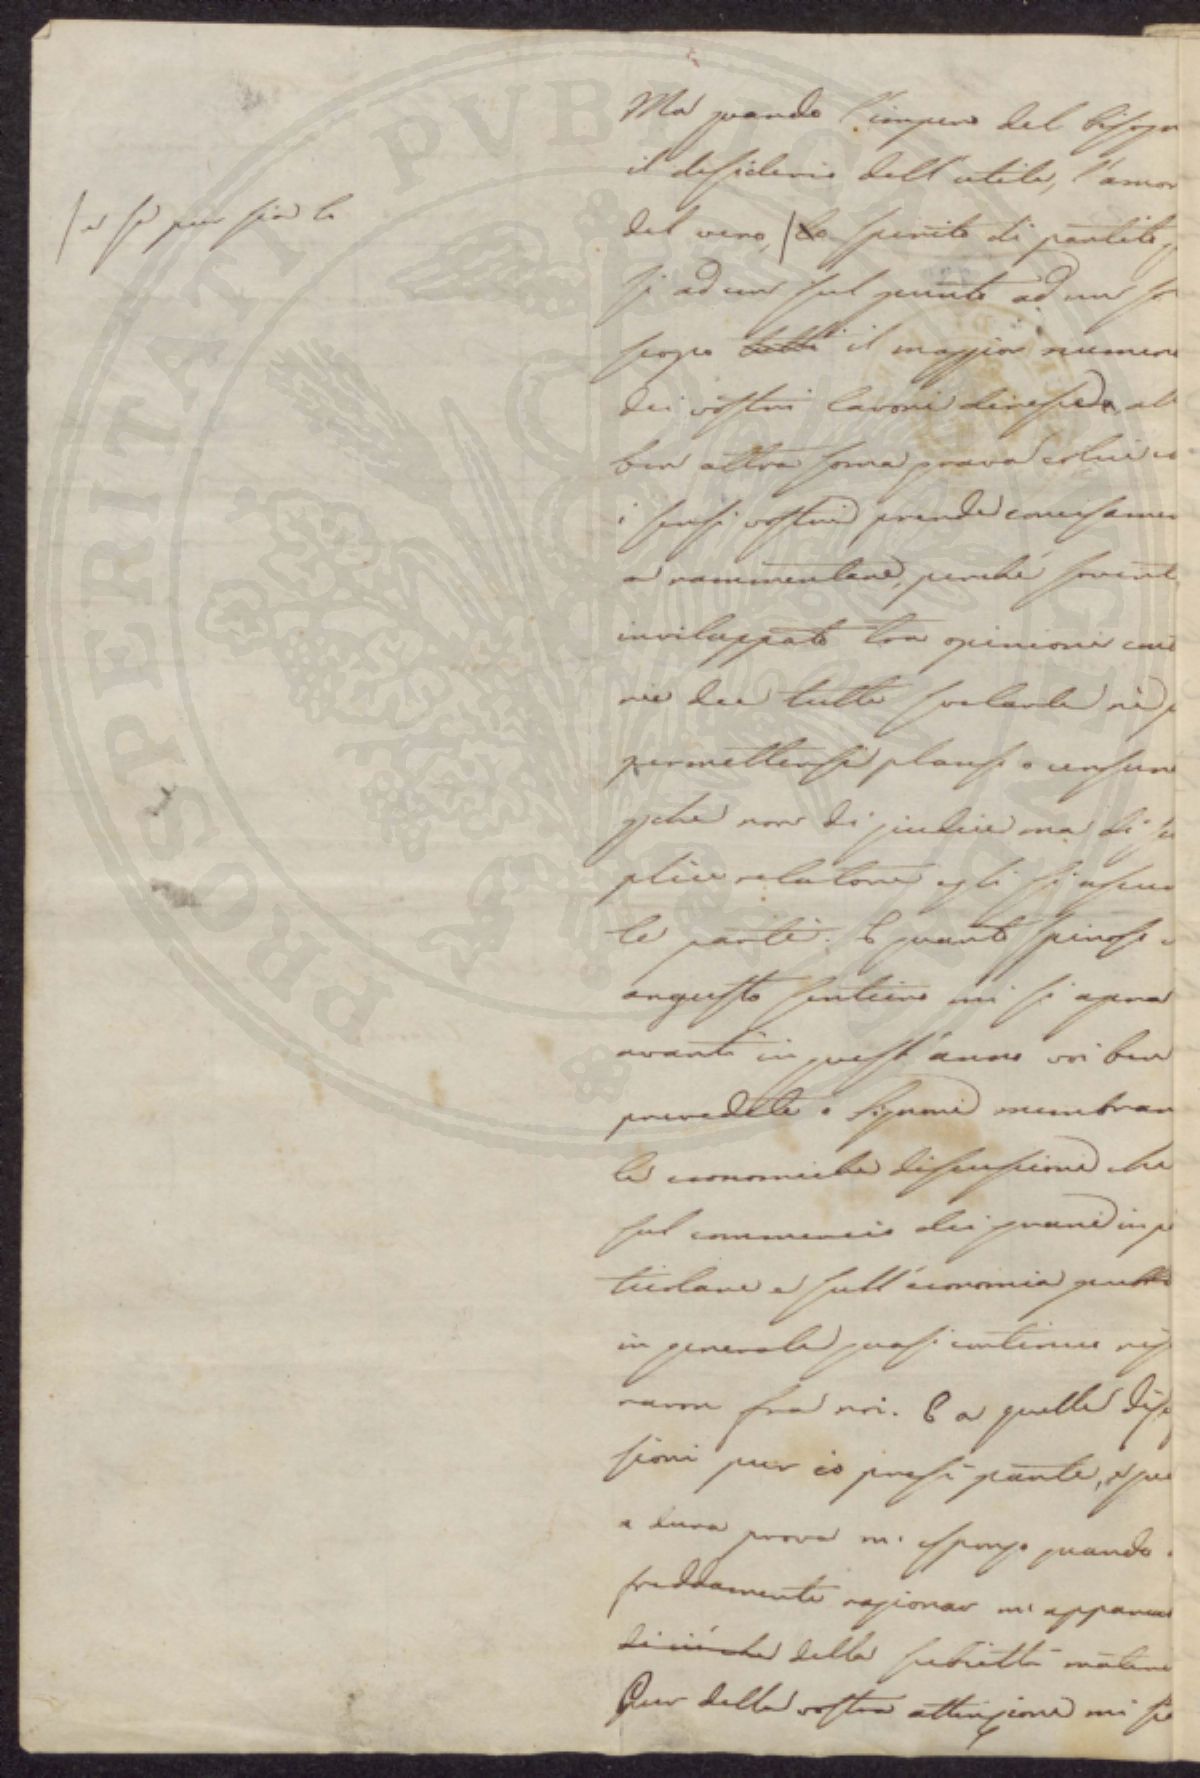 / e se pur sia lo
Ma quando l'impero del bisogn
il desiderio dell'utile, l'amor
del vero, / lo spirito di partito,
si ad un sol punto ad un so
scopo tutti il maggior numero
dei vostri lavori diresse, al
ben altra forma prova colui
i sensi vostri prende concisamen
a rammentare, perché sovent
inviluppato tra opinioni con
rie dee tutte svelarle né
permettersi plausi o censure
che non di giudice ma di
plice relatore egli si assun
le parti. E quanto spinoso
angusto sentiero mi si apra
avanti in quest'anno voi ben
prevedete o Signori membran
le economiche discussioni che
sul commercio dei grani in p
ticolare e sull'economia pubbli
in generale quasi continue
raron fra noi. E a quelle dis
sioni pur io presi parte, e
a dura prova mi espongo quando
freddamente ragionar mi
di ciò che della subietta materi
Pur della vostra attenzione mi